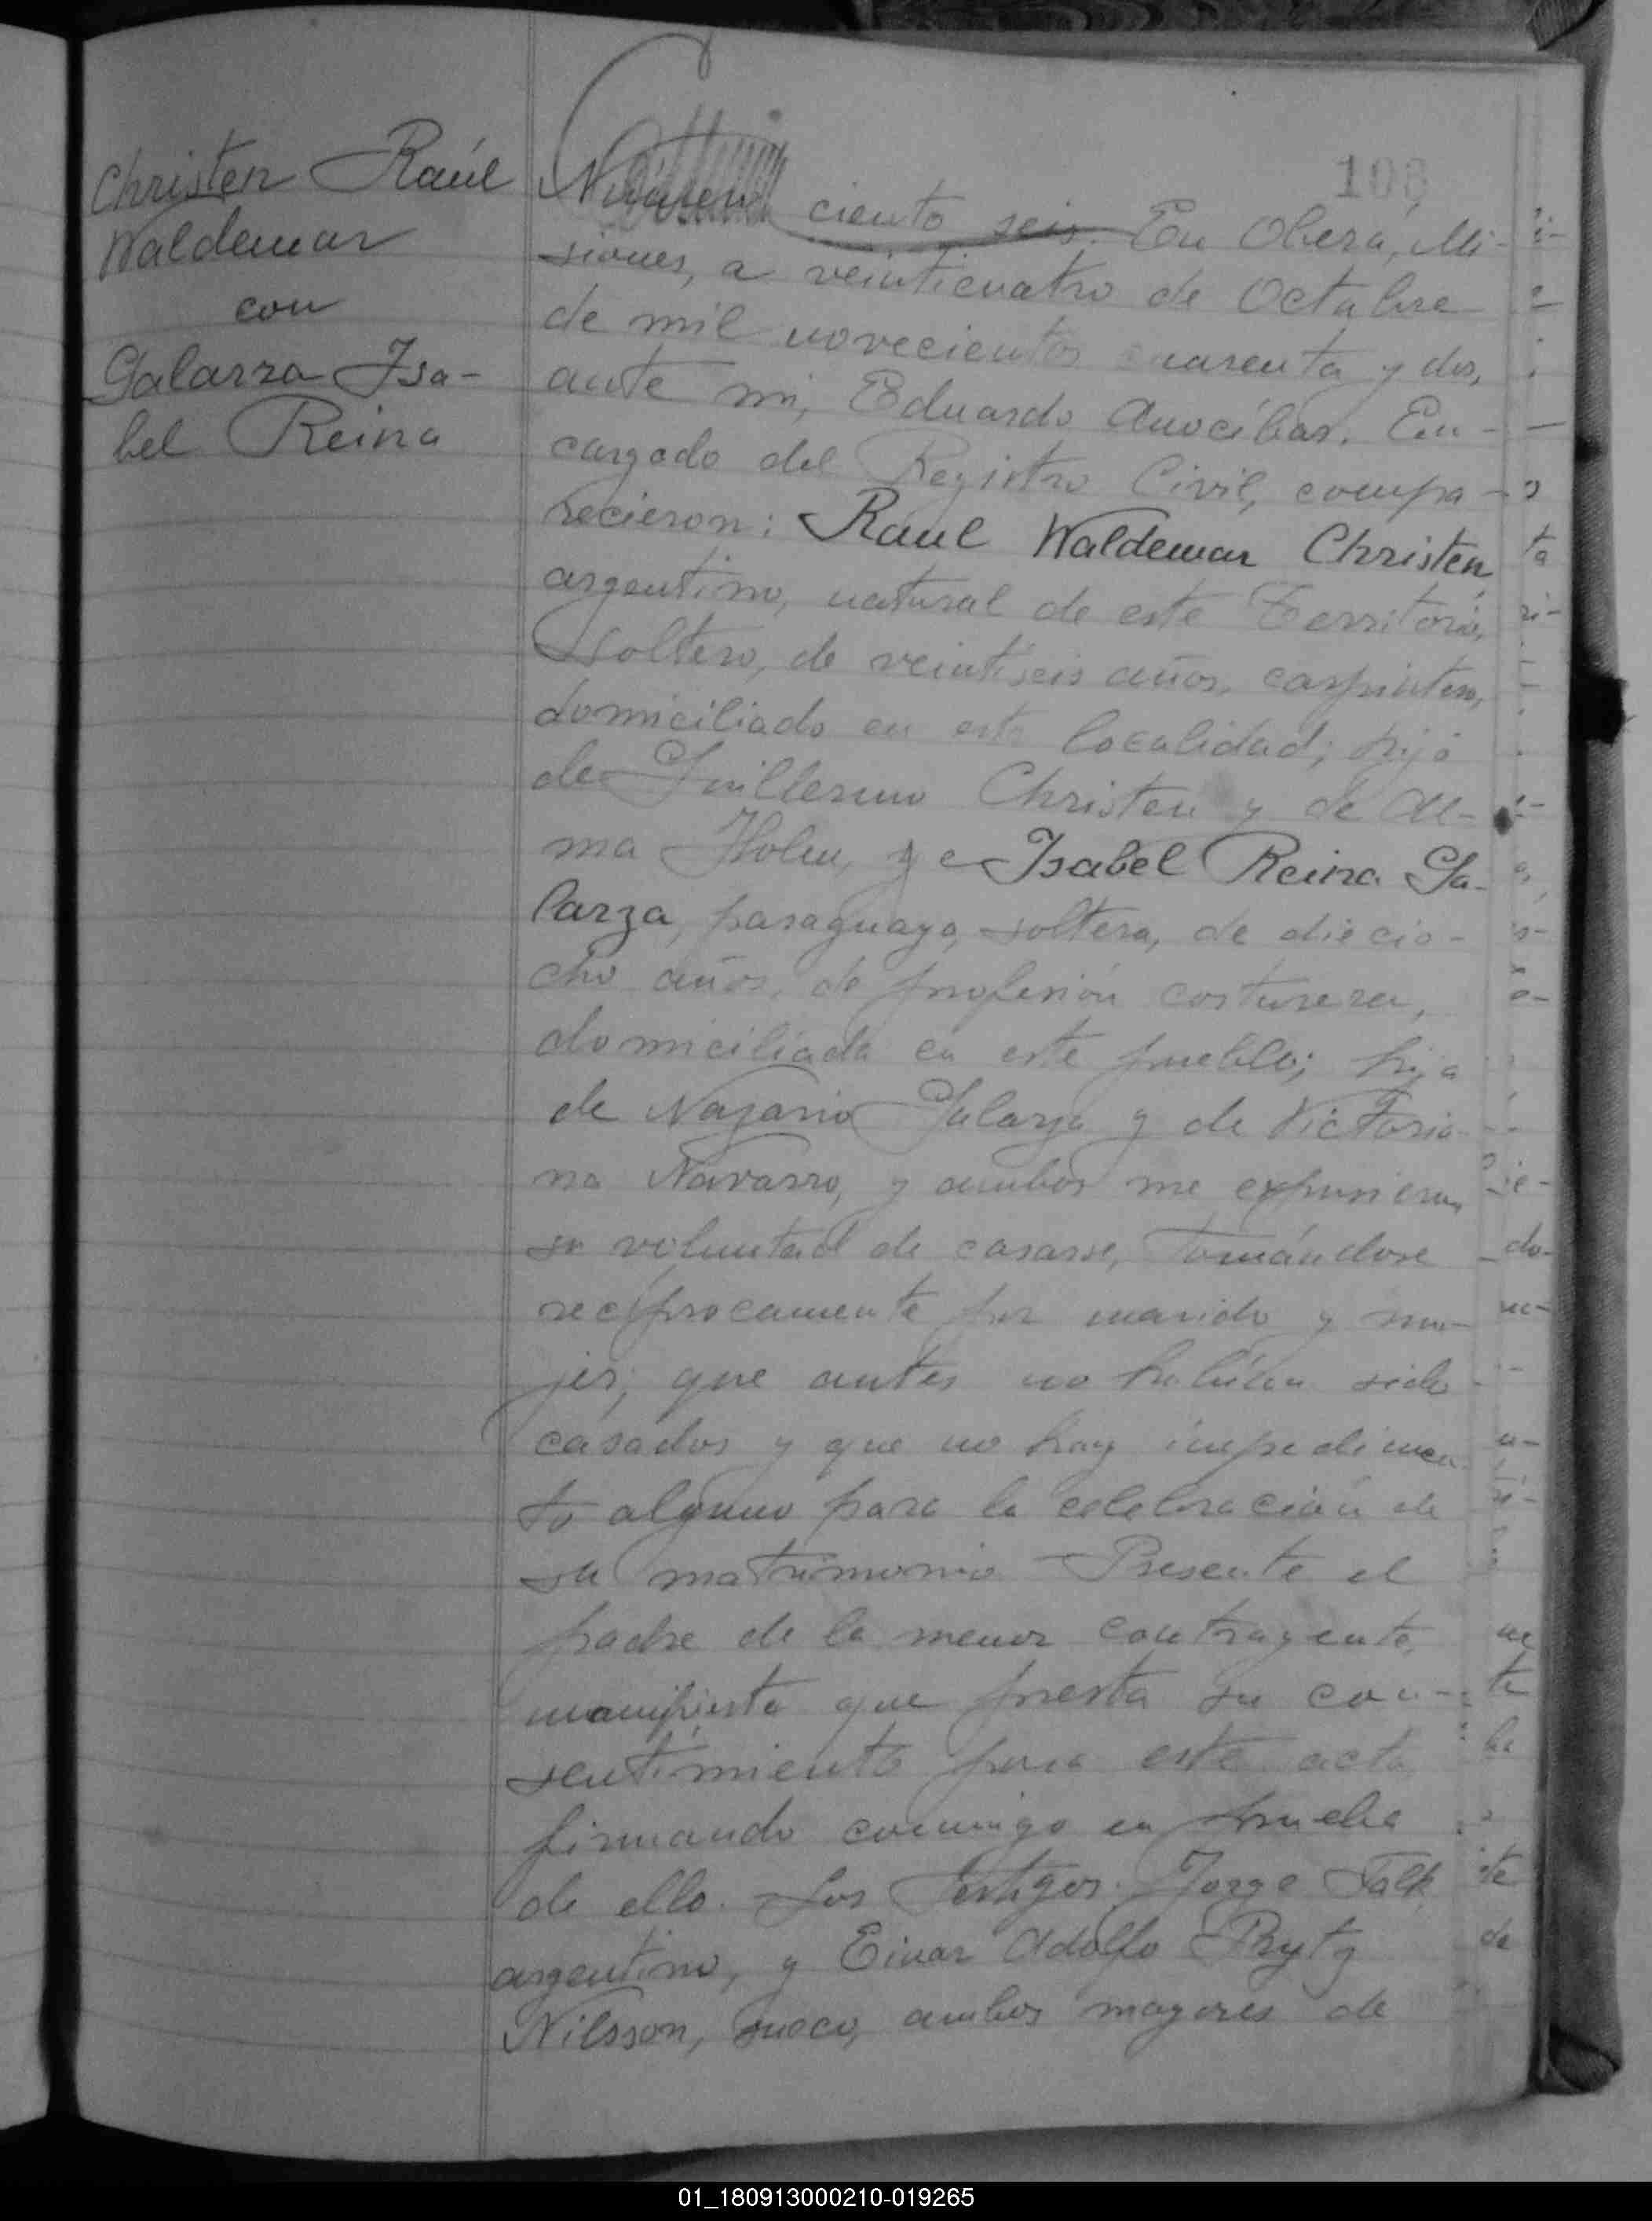 106
Christen Raúl
Waldemar
con
Galarza Isa-
bel Reina
Número ciento seis. En Oberá, Mi-
siones, a veinticuatro de Octubre
de mil novecientos cuarenta y dos,
ante mi, Eduardo Anocíbar. En-
cargado del Registro Civil, compa-
recieron: Raul Waldemar Christen,
argentino, natural de este Territorio,
soltero, de veintiseis años, carpintero,
domiciliado en esta localidad; hijo
de Guillermo Christen y de Al-
ma Holm, y e Isabel Reina Ga-
larza, paraguaya, soltera, de diecio-
cho años, de profesión costurera,
domiciliada en este pueblo; hija
de Nazario Galarza y de Victoria-
na Navarro, y ambos me expusieron
su voluntad de casarse, tomándose
recíprocamente por marido y mu-
jer; que antes no habían sido
casados y que no hay impedimen-
to alguno para la celebración de
su matrimonio. Presente el
padre de la menor contrayente,
manifiesta que presta su con-
sentimiento para este acto
firmando conmigo en prueba
de ello. Los testigos. Jorge Falk,
argentino, y Einar Adolfo Rytz
Nilsson, sueco, ambos mayores de
01_180913000210-019265